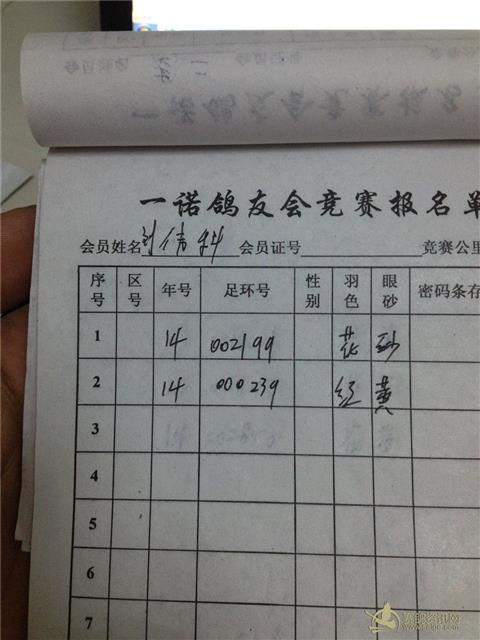 一诺鸽友会竞赛报名单
会员姓名 刘倩 会员证号 竞赛公里
序号 区号 年号 足环号 性别 羽色 眼砂 密码条存
1 14 002199 花 砂
2 14 000239 红 黄
3
4
5
6
7